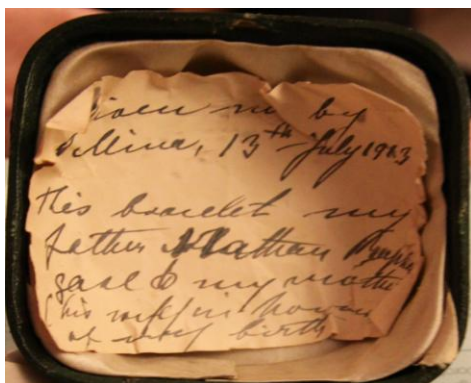 Given me by
Mina, 13th July 1913
This bracelet my
father Nathan
gave to my mother
(his wife) in honour
of my birth